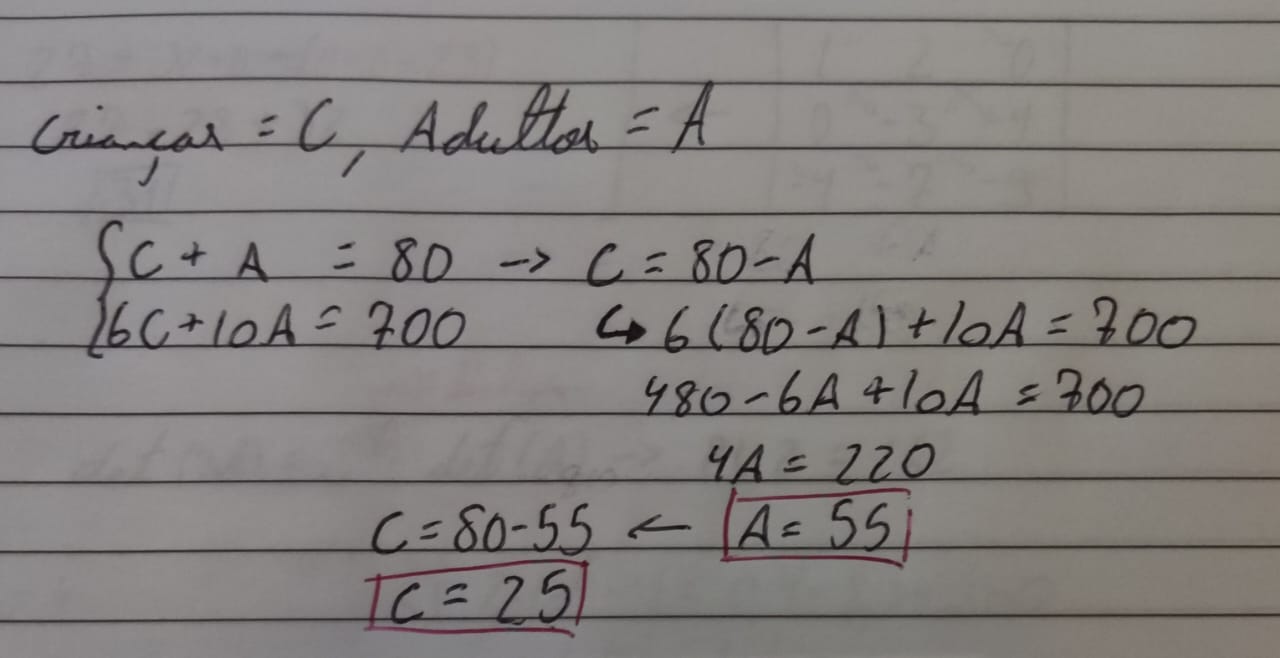 Crianças = C, Adultos = A
C + A = 80 → C = 80 - A
6C + 10A = 700 ↳ 6(80 - A) + 10A = 700
480 - 6A + 10A = 700
4A = 220
C = 80 - 55 ← A = 55
C = 25